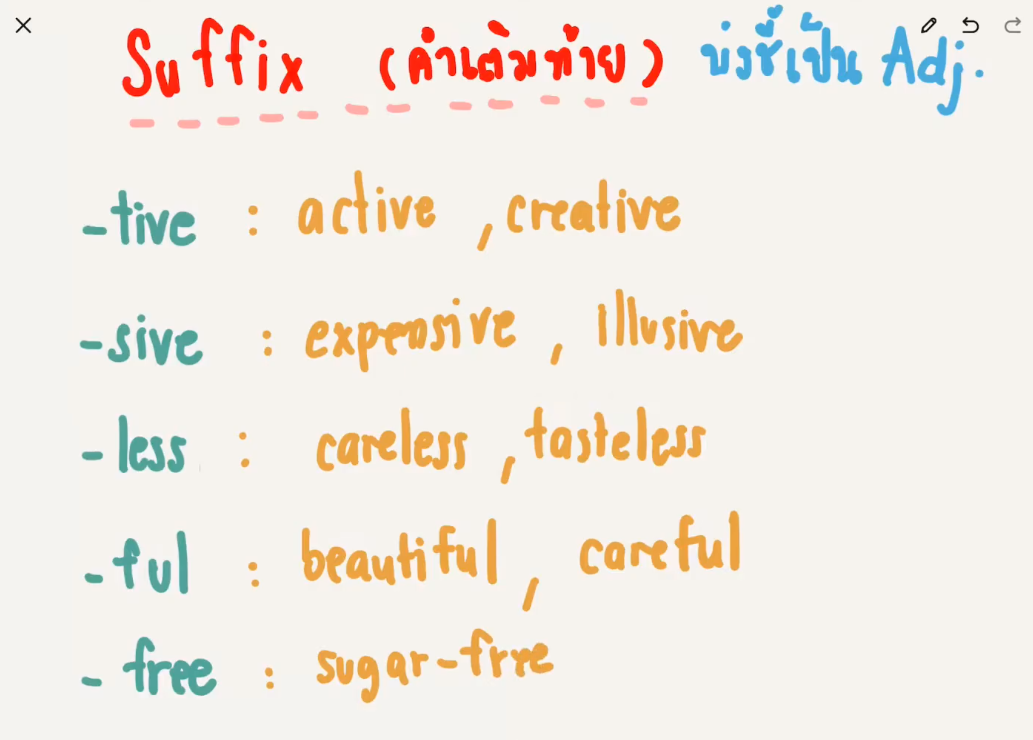 Suffix (คำเติมท้าย) บ่งชี้เป็น Adj.
-tive : active , creative
-sive : expensive , illusive
-less : careless , tasteless
-ful : beautiful , careful
-free : sugar-free